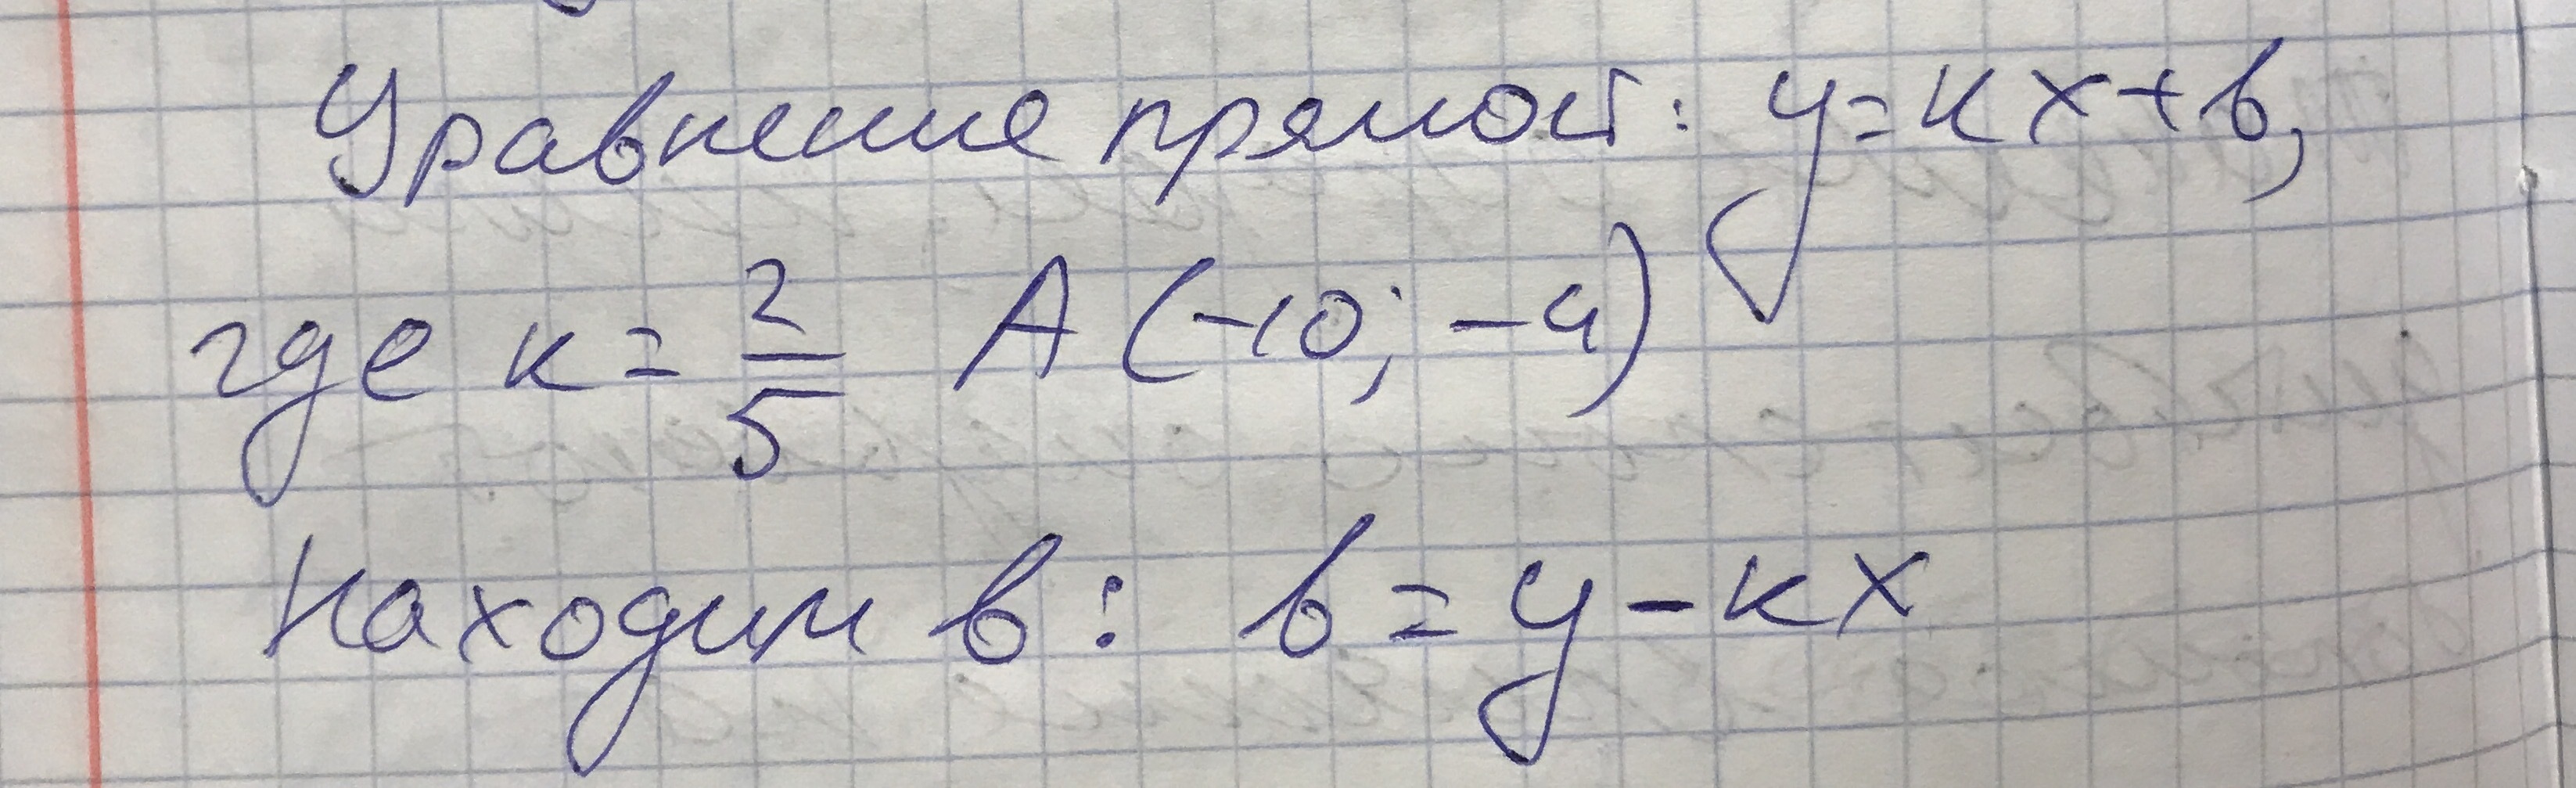 Уравнение прямой: y=kx+b,
где k=2/5 A(-10; -4)
Находим b: b=y-kx